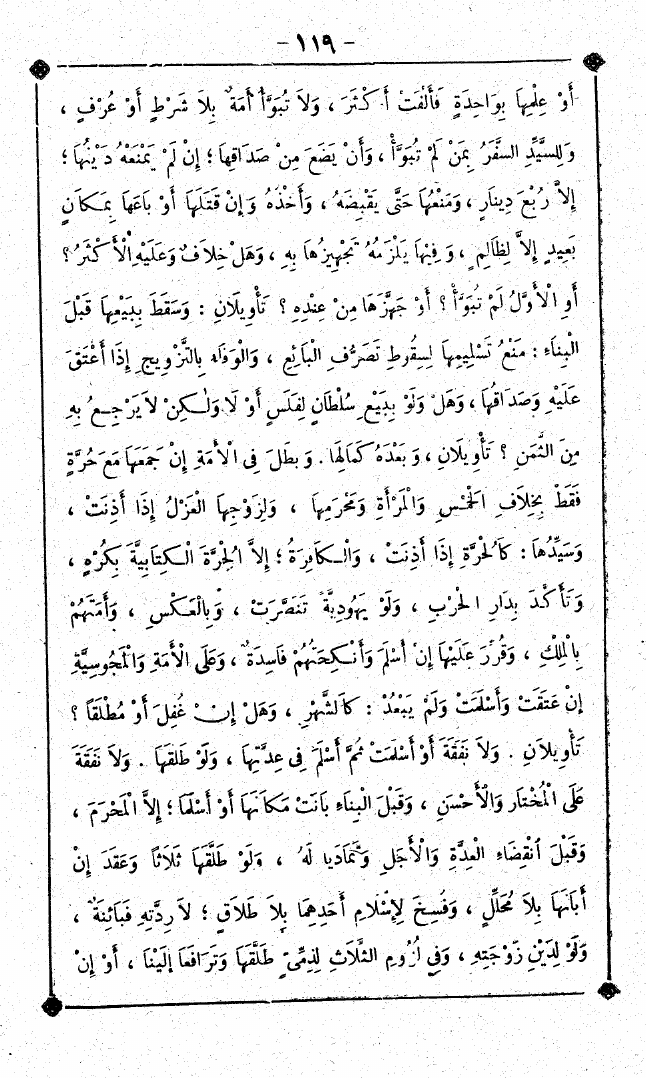 - ١١٩ -
أَوْ عِلْمِهَا بِوَاحِدَةٍ فَأَلْفَتْ أَكْثَرَ ، وَلاَ تُبَوَّأُ أَمَةٌ بِلاَ شَرْطٍ أَوْ عُرْفٍ ،
وَلِلسَّيِّدِ السَّفَرُ بِمَنْ لَمْ تُبَوَّأْ ، وَأَنْ يَضَعَ مِنْ صَدَاقِهَا ؛ إِنْ لَمْ يَمْنَعْهُ دَيْنُهَا ؛
إِلاَّ رُبْعَ دِينَارٍ ، وَمَنْعُهَا حَتَّى يَقْبِضَهُ ، وَأَخْذُهُ وَإِنْ قَتَلَهَا أَوْ بَاعَهَا بِمَكَانٍ
بَعِيدٍ إِلاَّ لِظَالِمٍ ، وَفِيهَا يَلْزَمُهُ تَجْهِيزُهَا بِهِ ، وَهَلْ خِلاَفٌ وَعَلَيْهِ الْأَكْثَرُ ؟
أَوِ الْأَوَّلُ لَمْ تُبَوَّأْ ؟ أَوْ جَهَّزَهَا مِنْ عِنْدِهِ ؟ تَأْوِيلاَنِ : وَسَقَطَ بِبَيْعِهَا قَبْلَ
الْبِنَاءِ : مَنْعُ تَسْلِيمِهَا لِسُقُوطِ تَصَرُّفِ الْبَائِعِ ، وَالْوَفَاءُ بِالتَّزْوِيجِ إِذَا أَعْتَقَ
عَلَيْهِ وَصَدَاقُهَا ، وَهَلْ وَلَوْ بِبَيْعِ سُلْطَانٍ لِفَلَسٍ أَوْ لاَ وَلٰكِنْ لاَ يَرْجِعُ بِهِ
مِنَ الثَّمَنِ ؟ تَأْوِيلاَنِ ، وَبَعْدَهُ كَمَالِهَا . وَبَطَلَ فِي الْأَمَةِ إِنْ جَمَعَهَا مَعَ حُرَّةٍ
فَقَطْ بِخِلاَفِ الْخَمْسِ وَالْمَرْأَةِ وَمَحْرَمِهَا ، وَلِزَوْجِهَا الْعَزْلُ إِذَا أَذِنَتْ ،
وَسَيِّدُهَا : كَالْحُرَّةِ إِذَا أَذِنَتْ ، وَالْكَافِرَةُ ؛ إِلاَّ الْحُرَّةَ الْكِتَابِيَّةَ بِكُرْهٍ ،
وَتَأَكَّدَ بِدَارِ الْحَرْبِ ، وَلَوْ يَهُودِيَّةً تَنَصَّرَتْ ، وَبِالْعَكْسِ ، وَأَمَتَهُمْ
بِالْمِلْكِ ، وَقُرِّرَ عَلَيْهَا إِنْ أَسْلَمَ وَأَنْكِحَتُهُمْ فَاسِدَةٌ ، وَعَلَى الْأَمَةِ وَالْمَجُوسِيَّةِ
إِنْ عَتَقَتْ وَأَسْلَمَتْ وَلَمْ يَبْعُدْ : كَالشَّهْرِ ، وَهَلْ إِنْ غُفِلَ أَوْ مُطْلَقاً ؟
تَأْوِيلاَنِ . وَلاَ نَفَقَةَ أَوْ أَسْلَمَتْ ثُمَّ أَسْلَمَ فِي عِدَّتِهَا ، وَلَوْ طَلَّقَهَا . وَلاَ نَفَقَةَ
عَلَى الْمُخْتَارِ وَالْأَحْسَنِ ، وَقَبْلَ الْبِنَاءِ بَانَتْ مَكَانَهَا أَوْ أَسْلَمَا ؛ إِلاَّ الْمَحْرَمَ ،
وَقَبْلَ انْقِضَاءِ الْعِدَّةِ وَالْأَجَلِ وَتَمَادَيَا لَهُ ، وَلَوْ طَلَّقَهَا ثَلاَثاً وَعَقَدَ إِنْ
أَبَانَهَا بِلاَ مُحَلِّلٍ ، وَفُسِخَ لِإِسْلاَمِ أَحَدِهِمَا بِلاَ طَلاَقٍ ؛ لاَ رِدَّتِهِ فَبَائِنَةٌ ،
وَلَوْ لِدِينِ زَوْجَتِهِ ، وَفِي لُزُومِ الثَّلاَثِ لِذِمِّيٍّ طَلَّقَهَا وَتَرَافَعَا إِلَيْنَا ، أَوْ إِنْ